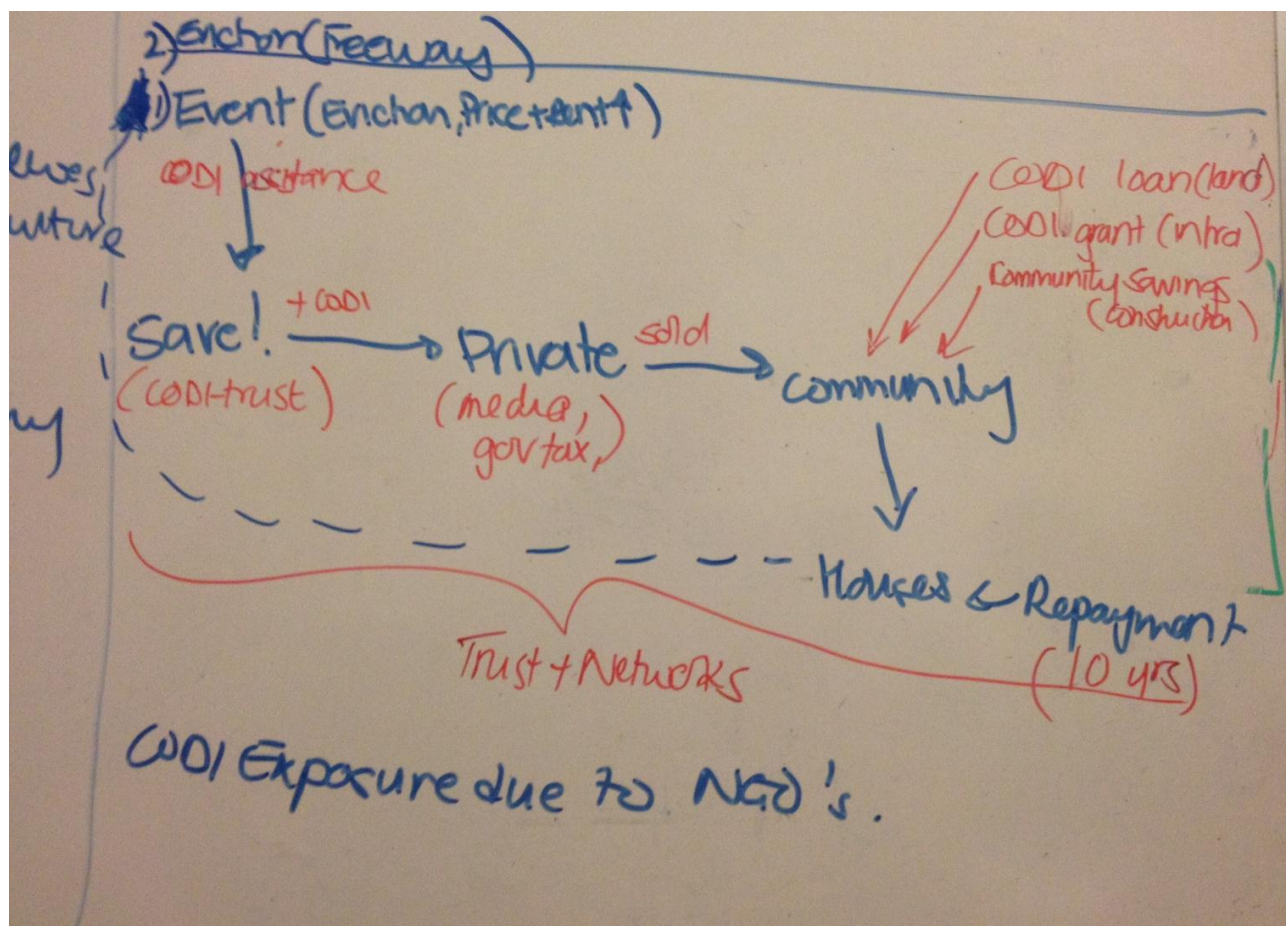 2) Enchon (Freeway)
1) Event (Enchon, Price + Rent↑)
CODI assistance
CODI loan (land)
CODI grant (infra)
Community Savings
(construction)
ulture
Save! + CODI Private sold Community
(CODI-trust) (media,
gov tax,)
Houses ← Repayment
(10 yrs)
Trust + Networks
CODI Exposure due to NGO's.